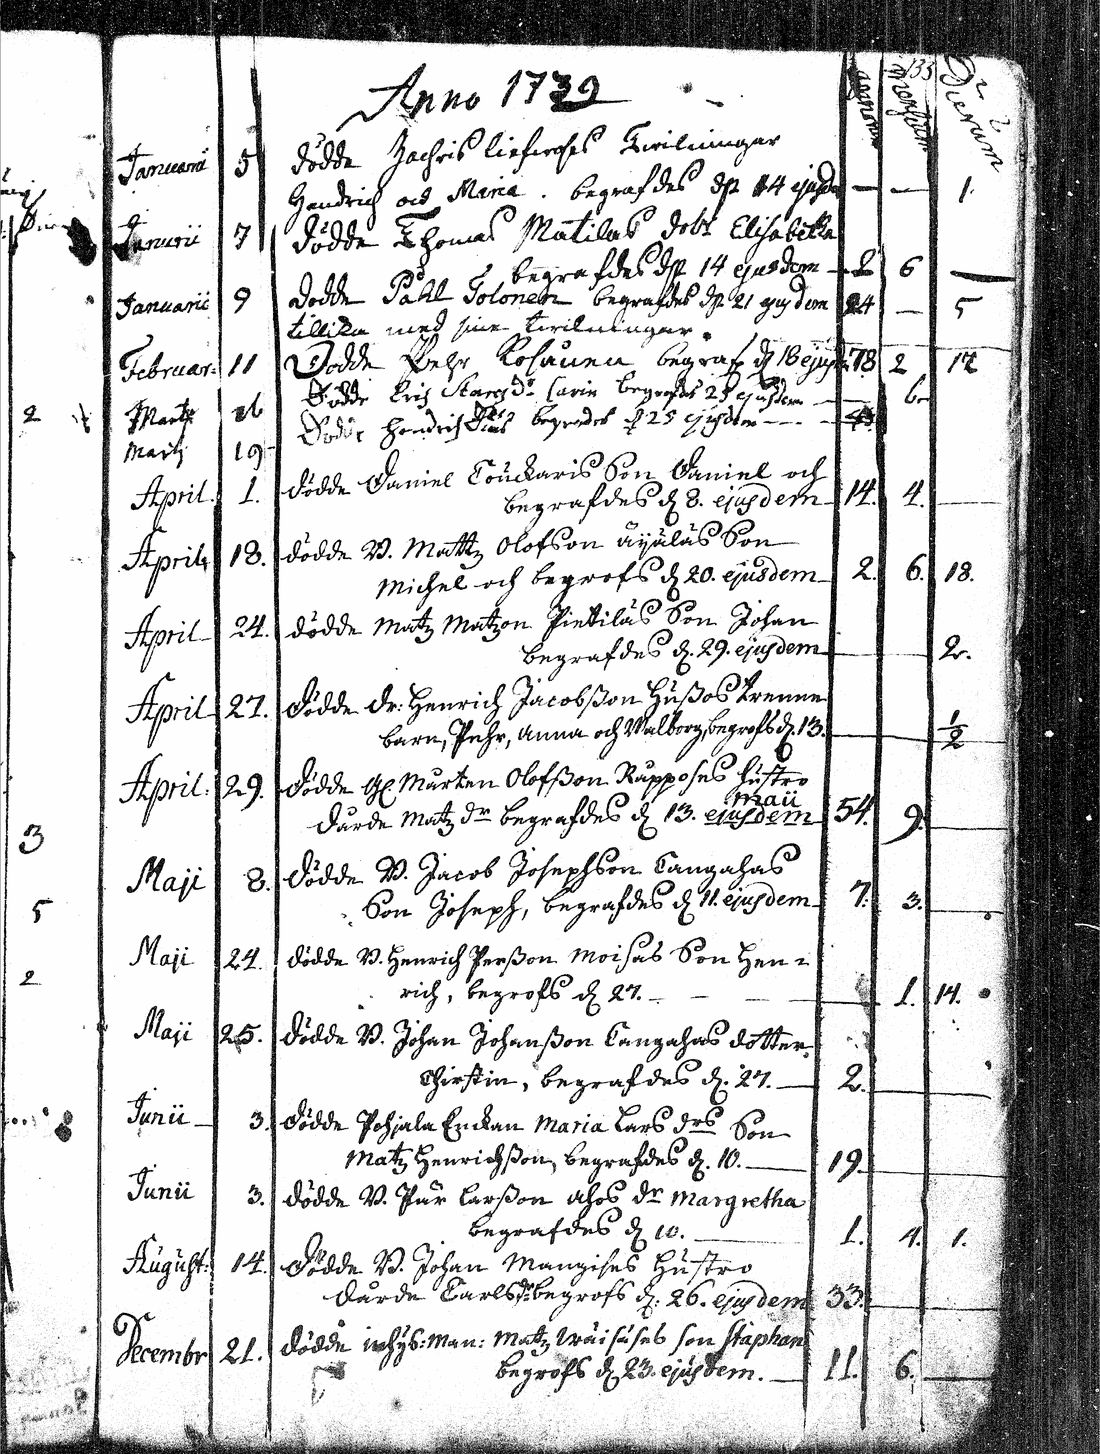 135
Anno 1739
annorum mensium Dierum
Januarii 5 dödde Zachris Tvilningar
Hendrich och Maria. begrafdes d 14 ejusdem — — 1.
Januarii 7 dödde Thomas Matilas dotr Elisabetha
begrafdes d 14 ejusdem 2 6 —
Januarii 9 dödde Påhl Tolonen begrafdes d 21 ejusdem 24 — 5
tillika med sine tvilningar.
Februar: 11 Dödde Pehr Kosunen begraf d 18 ejusd 78 2 17
Martz 16 Dödde Erich dr Carin begrafdes 25 ejusdem
Martz 19 Dödde Hendrich begrofdes d 25 ejusdem
April. 1. dödde Daniel Son Daniel och
begrafdes d 8. ejusdem 14. 4.
April. 18. dödde V. Mattz Olofson äijäläs Son
Michel och begrofs d 20. ejusdem 2. 6. 18.
April 24. dödde Matz Matzon Pietiläs Son Johan
begrafdes d. 29. ejusdem 2.
April 27. dödde dr: Henrich Jacobßon Hußos trenne
barn, Pehr, Anna och Walborg, begrofs d. 13. 1/2
April: 29. dödde Mårten Olofßon Rapposes hustro
maii
Darde Matz dr begrafdes d 13. ejusdem 54. 9.
Maji 8. dödde V. Jacob Josephson Cangahas
Son Joseph, begrafdes d 11. ejusdem 7. 3.
Maji 24. dödde V. Henrich Perßon Moisas Son Hen=
rich, begrofs d 27. 1. 14.
Maji 25. dödde V. Johan Johanßon Cangahas dotter
Chirstin, begrafdes d. 27. 2.
Junii 3. dödde Pohjala Enckan Maria Lars drs Son
Matz Henrichßon, begrafdes d. 10. 19.
Junii 3. dödde V. Pär Larßon ahos dr Margretha
begrafdes d 10. 1. 4. 1.
August: 14. dödde V. Johan Mangises hustro
Darde Carls dr begrofs d: 26. ejusdem 33.
Decembr 21. dödde inhys: Man: Matz Wäisäses son Staphan
begrofs d 23. ejusdem. 11. 6.
2
3
5
2